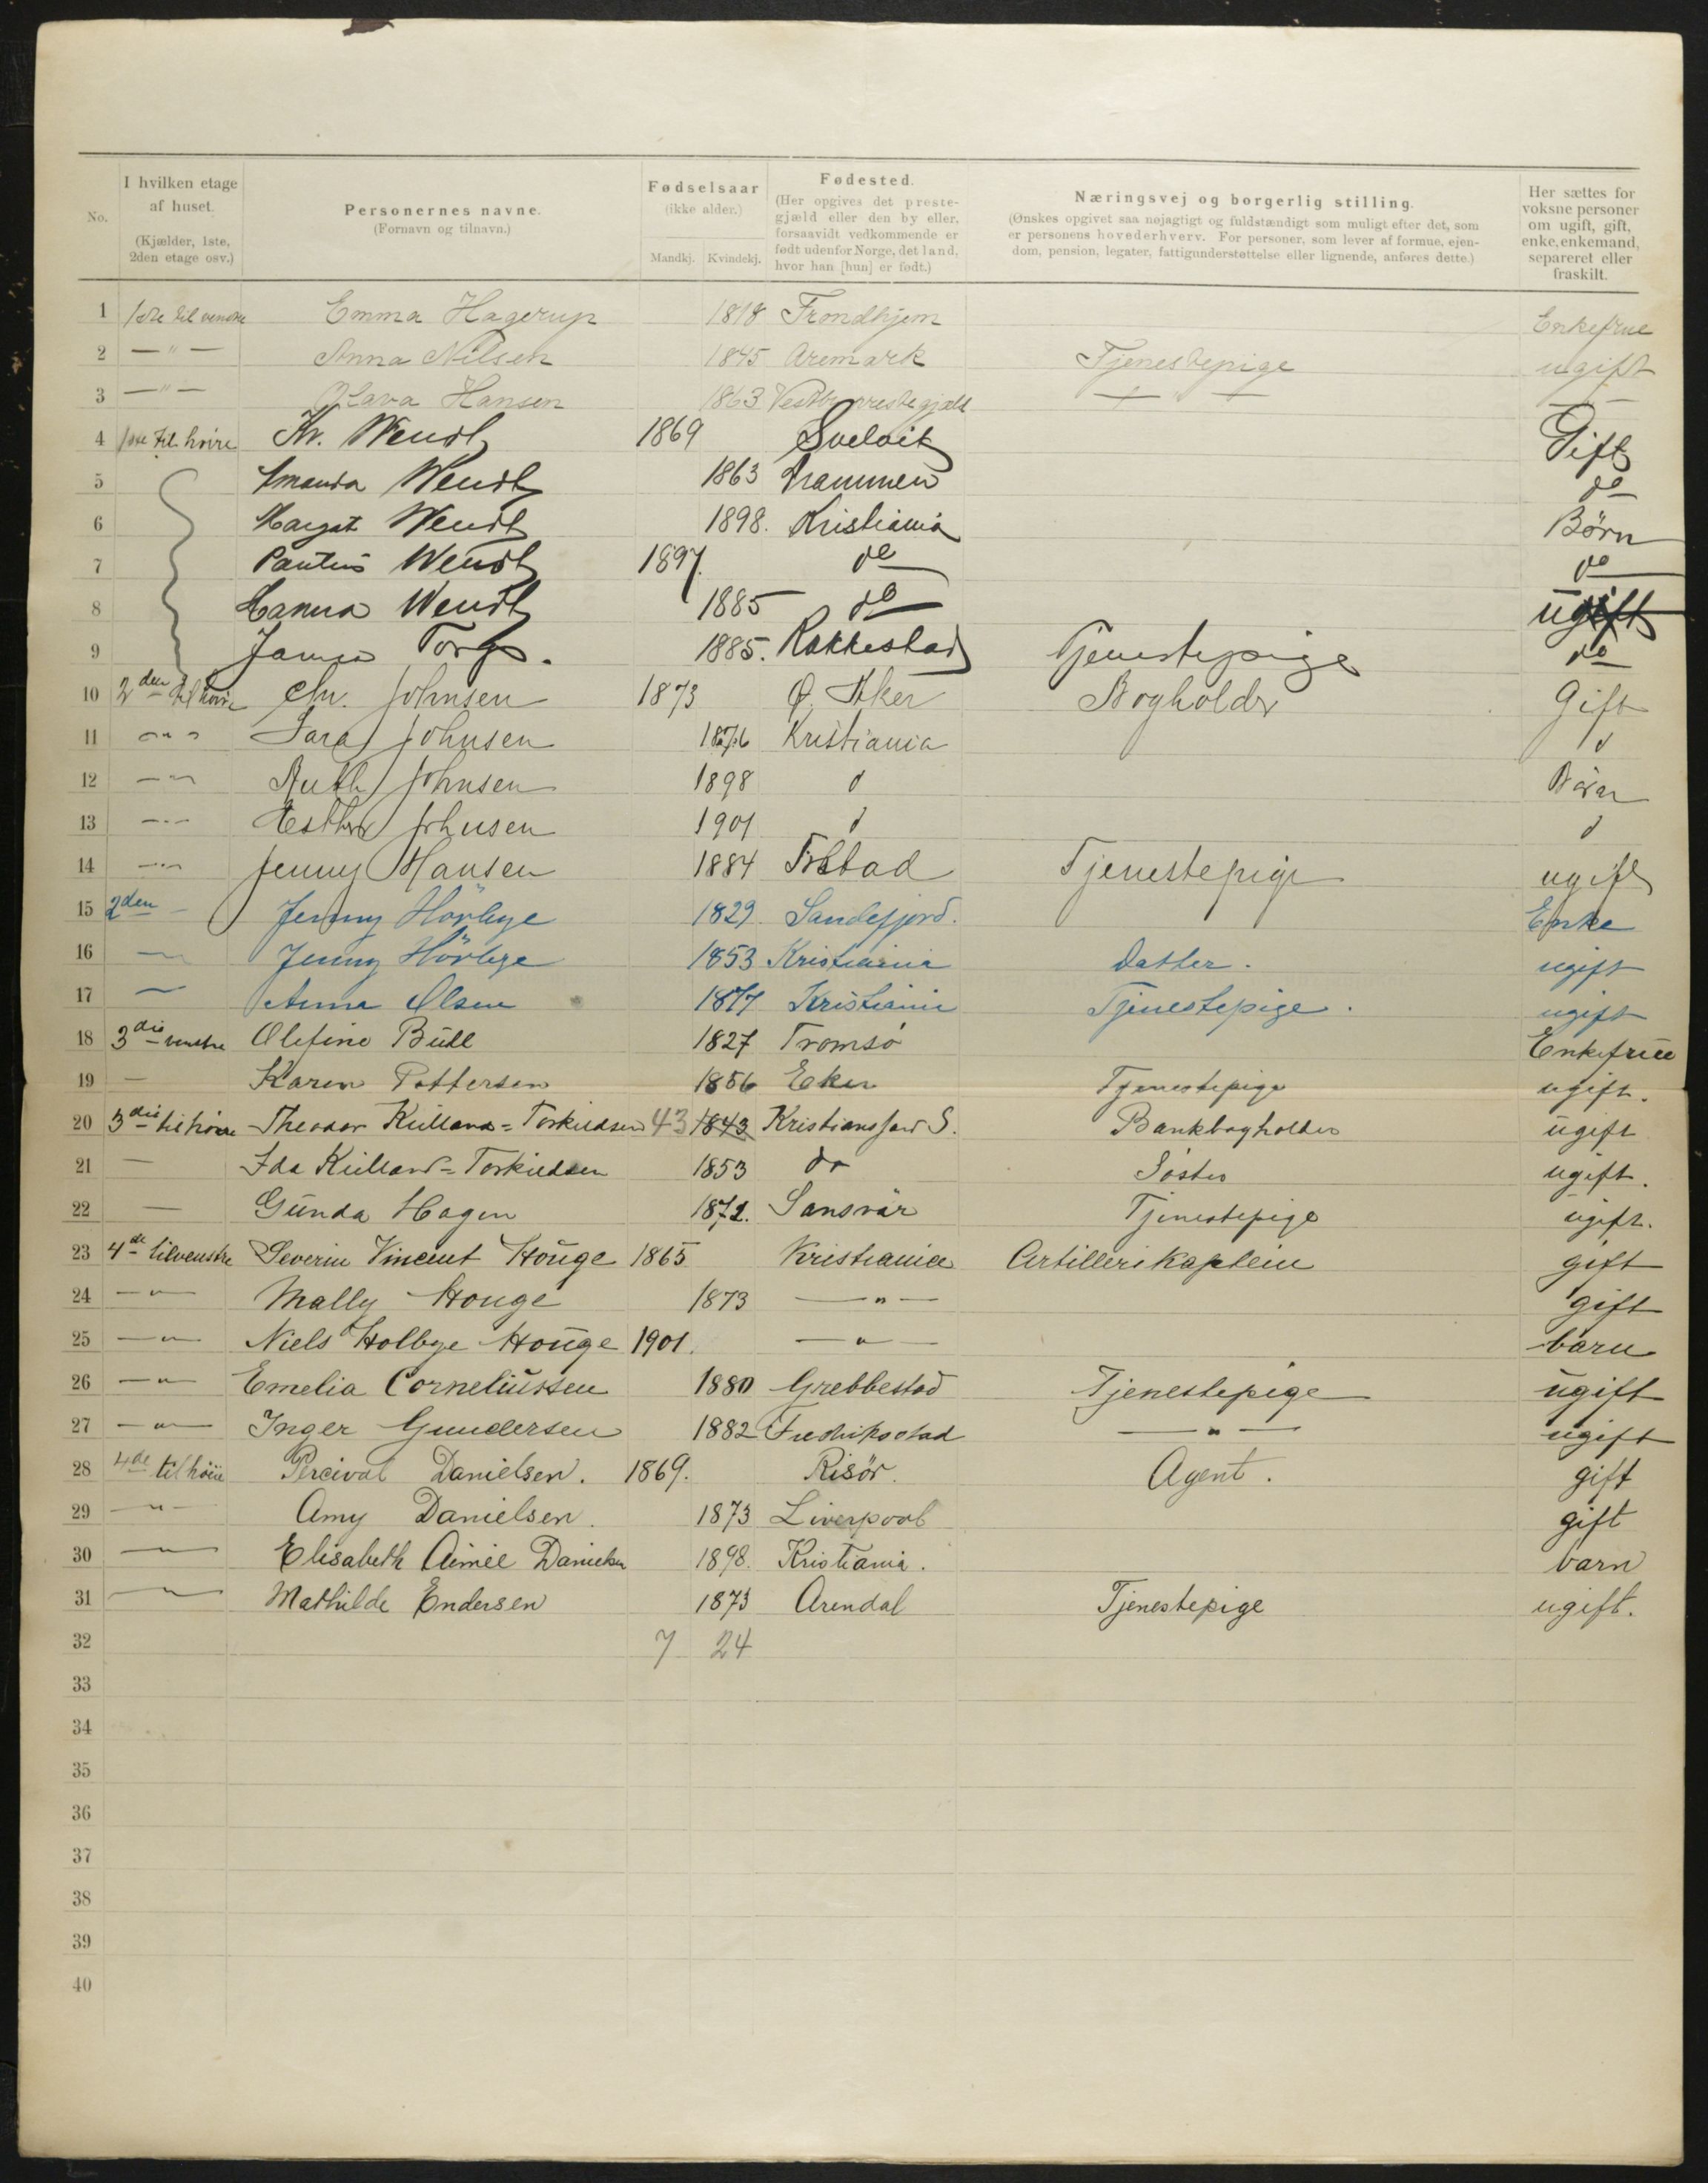 No. I hvilken etage af huset. (Kjælder, 1ste, 2den etage osv.) Personernes navne. (Fornavn og tilnavn.) Fødselsaar (ikke alder.) Mandkj. Kvindekj. Fødested. (Her opgives det prestegjæld eller den by eller, forsaavidt vedkommende er født udenfor Norge, det land, hvor han [hun] er født.) Næringsvej og borgerlig stilling. (Ønskes opgivet saa nøjagtigt og fuldstændigt som muligt efter det, som er personens hovederhverv. For personer, som lever af formue, ejendom, pension, legater, fattigunderstøttelse eller lignende, anføres dette.) Her sættes for voksne personer om ugift, gift, enke, enkemand, separeret eller fraskilt.
1 1ste til venstre Emma Hagerup 1818 Trondhjem Enkefrue
2 — " — Anna Nilsen 1845 Aremark Tjenestepige ugift
3 — " — Olava Hansen 1863 — " — —
4 1ste til høire Kr. Wendt 1869 Svelvik Gift
5 Amanda Wendt 1863 Drammen do
6 Margit Wendt 1898. Kristiania Børn
7 Wendt 1897. do do
8 Wendt 1885 do ugift
9 1885. Rakkestad Tjenestepige do
10 2den til høire Chr. Johnsen 1873 Ø. Aker Bogholder Gift
11 — " — Sara Johnsen 1876 Kristiania d
12 — " — Ruth Johnsen 1898 d Børn
13 — " — Esther Johnsen 1901 d d
14 — " — Jenny Hansen 1884 Tjenestepige ugift
15 2den — Jenny Hörbye 1829. Sandefjord. Enke
16 — Jenny Hörbye 1853 Kristiania Datter. ugift
17 — Anna Olsen 1877 Kristiania Tjenestepige. ugift
18 3die venstre Olefine Bull 1827 Tromsø Enkefrue
19 — Karen Pettersen 1856 Eker Tjenestepige ugift.
20 3die til høire Theodor Kielland=Torkildsen 43 1843 Kristianssand S. Bankbogholder ugift
21 — Ida Kielland=Torkildsen 1853 do Søster ugift.
22 — Gunda Hagen 1872. Sansvär Tjenestepige ugift.
23 4de til venstre Severin Vincent Houge 1865 Kristiania Artillerikaptein gift
24 — " — Mally Houge 1873 — " — gift
25 — " — Niels Holbye Houge 1901. — " — barn
26 — " — Emelia Corneliussen 1880 Grebbestad Tjenestepige ugift
27 — " — Inger Gundersen 1882 Fredrikstad — " — ugift
28 4de til høire Percival Danielsen. 1869. Risör. Agent. gift
29 — " — Amy Danielsen. 1873 Liverpool gift
30 — " — Elisabeth Aimée Danielsen 1898. Kristiania. barn
31 — " — Mathilde Endersen 1873 Arendal Tjenestepige ugift.
32 7 24
33
34
35
36
37
38
39
40